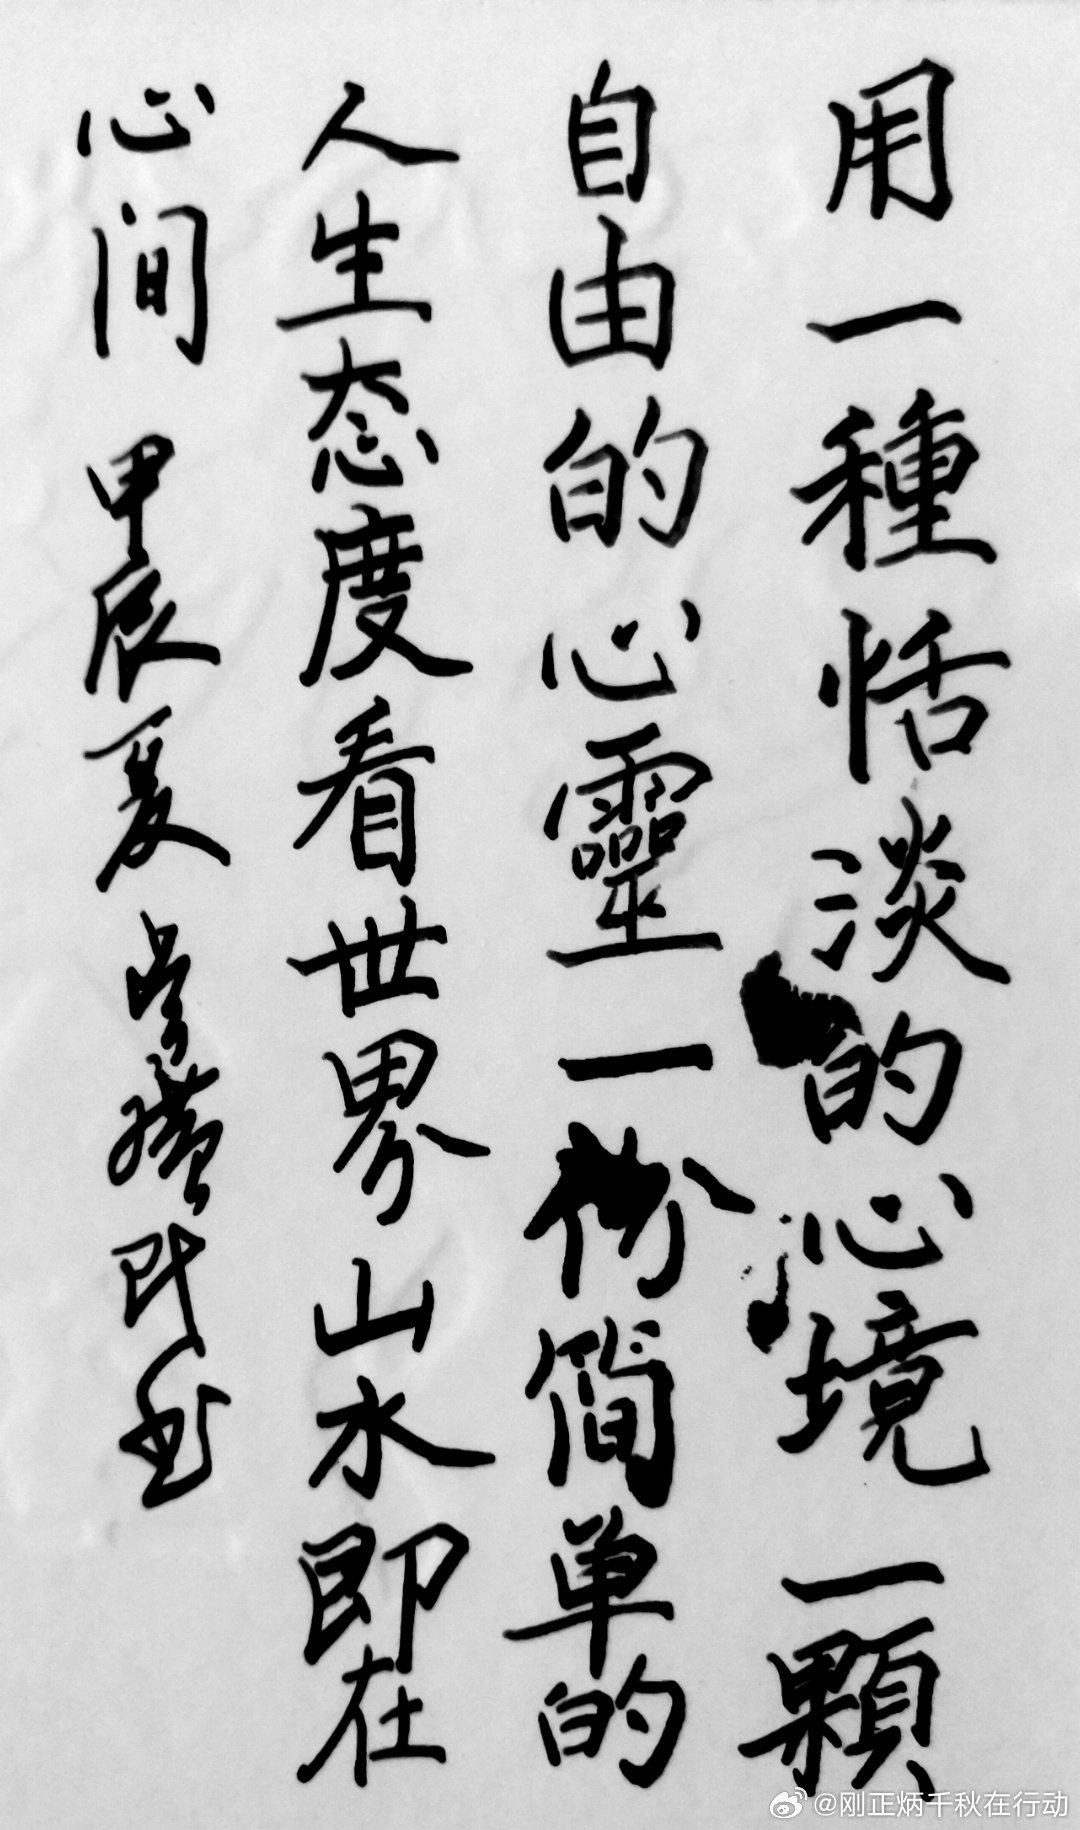 用一種恬淡的心境一顆
自由的心靈一份简单的
人生态度看世界山水即在
心间 甲辰夏 书
@刚正炳千秋在行动